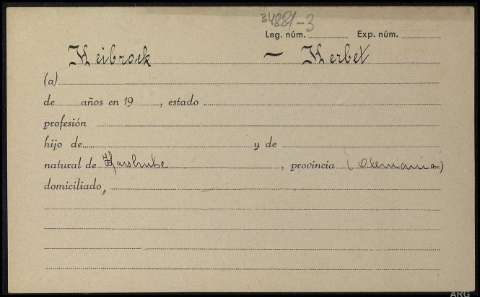 34881-3
Leg. núm. Exp. núm.
Heibroek — Herbet
(a)
de años en 19 , estado
profesión
hijo de y de
natural de Karslruhe , provincia (Alemania)
domiciliado,
ARG